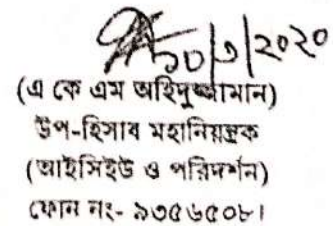 ১০/৩/২০২০
(এ কে এম অহিদুজ্জামান)
উপ-হিসাব মহানিয়ন্ত্রক
(আইসিইউ ও পরিদর্শন)
ফোন নং- ৯৩৫৬৫০৮।